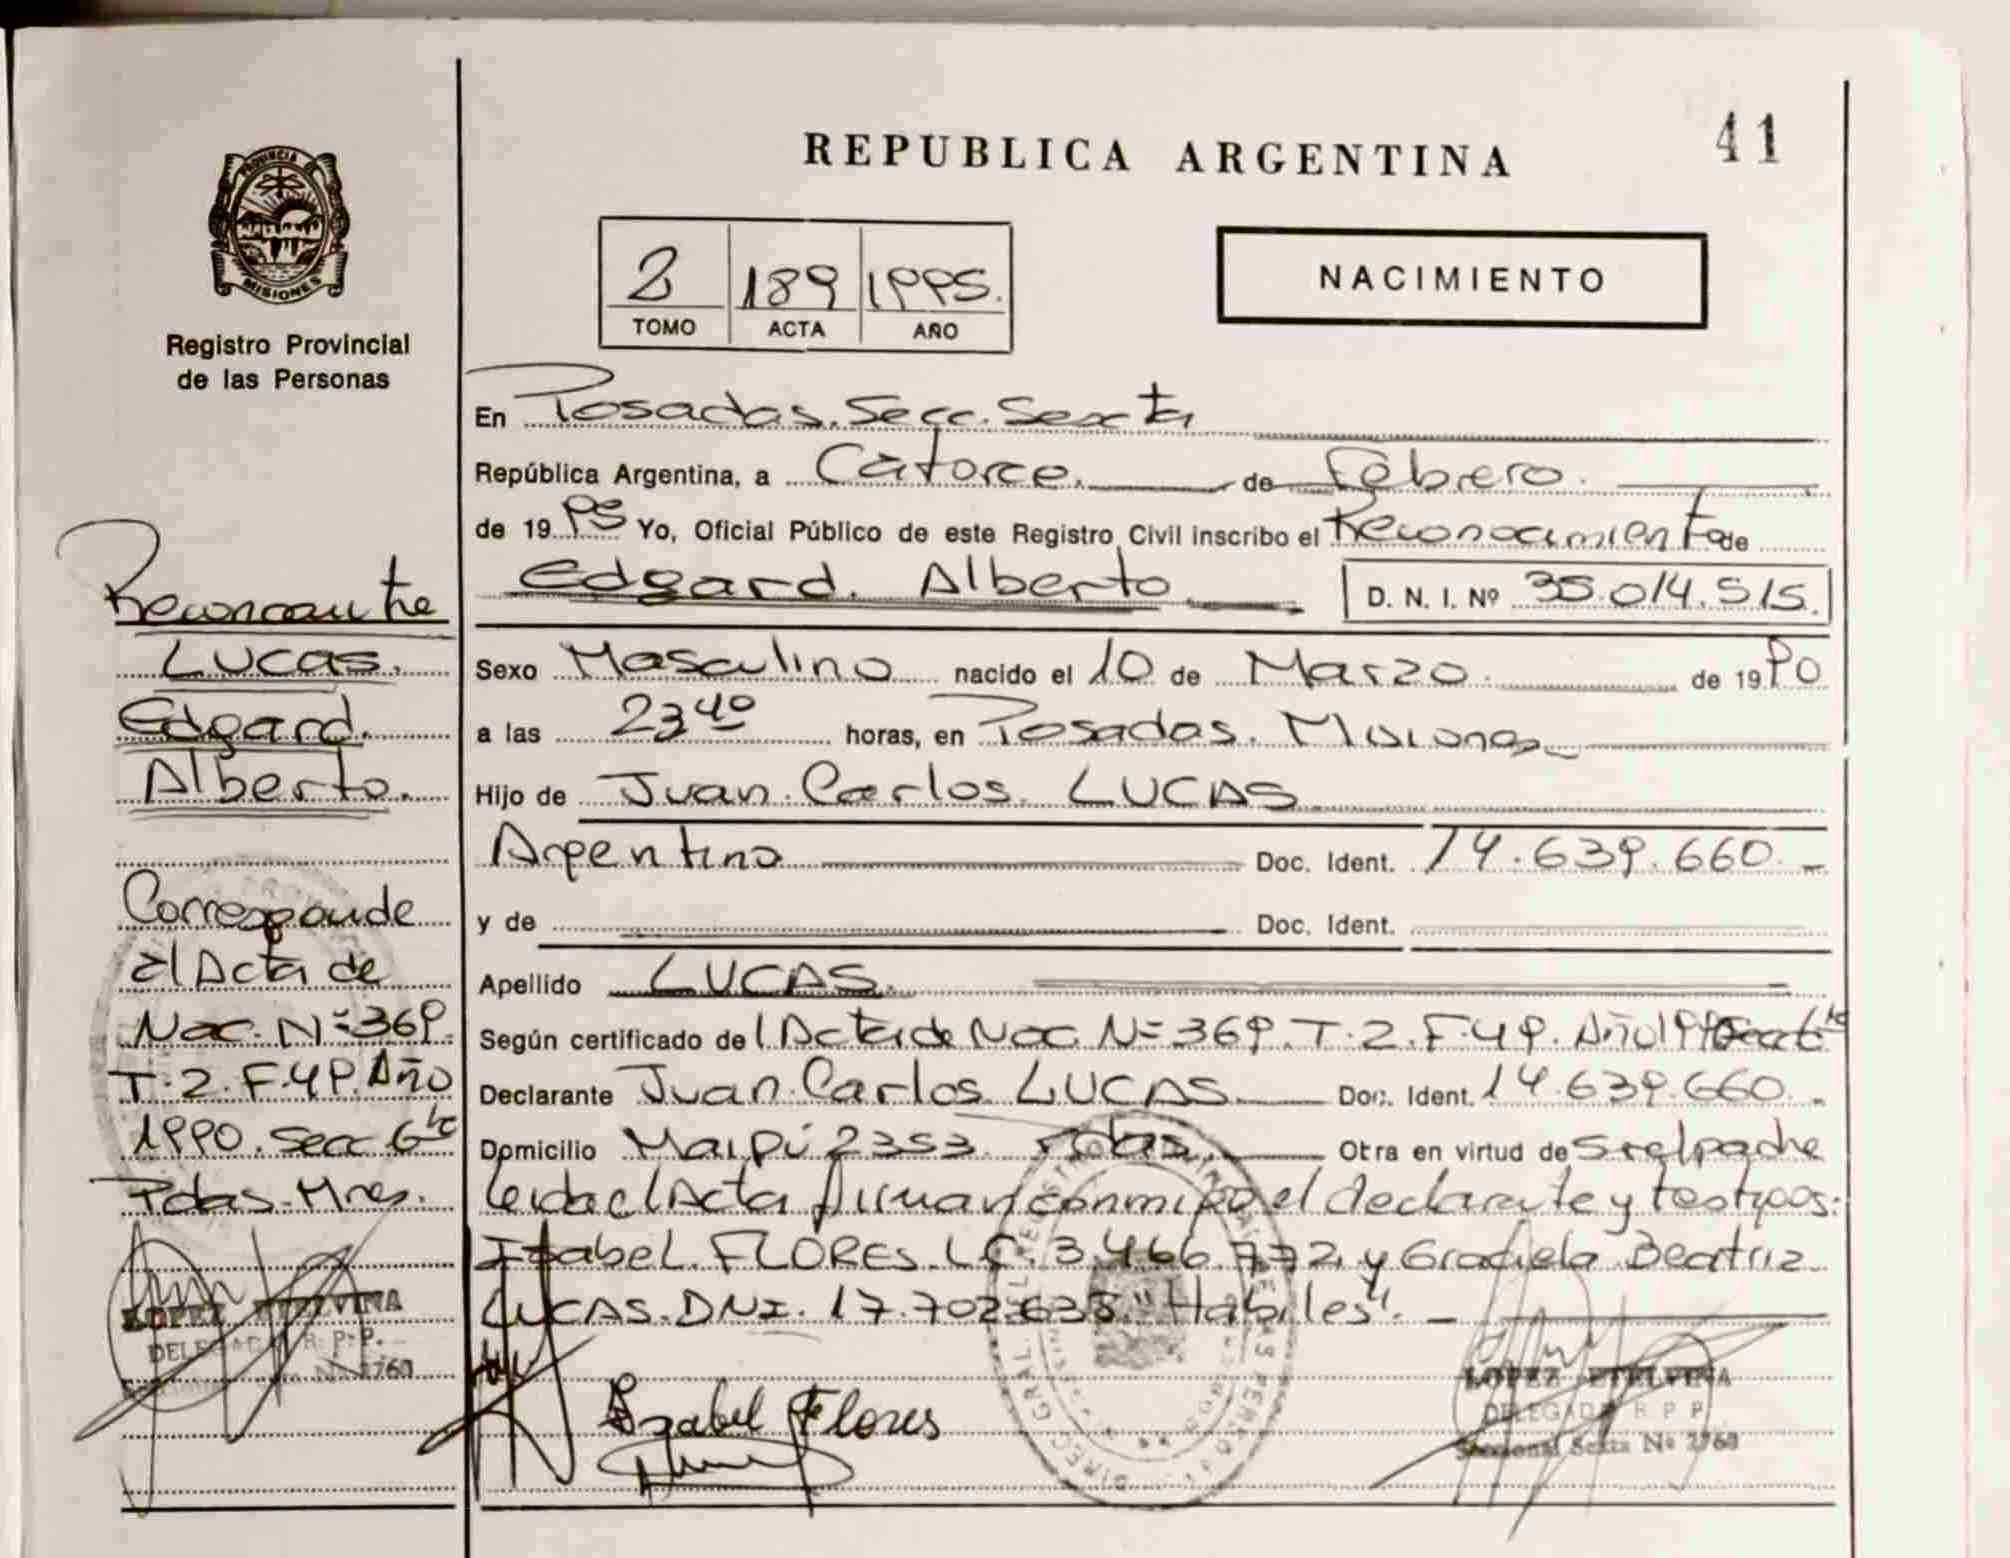 REPUBLICA ARGENTINA
41
PROVINCIA
MISIONES
Registro Provincial
de las Personas
2 189 1995.
TOMO ACTA AÑO
NACIMIENTO
En Posadas. Secc. Sexta
República Argentina, a Catorce. de Febrero.
de 1995 Yo, Oficial Público de este Registro Civil inscribo el Reconocimiento de
Edgard. Alberto D. N. I. Nº 35.014.515.
Sexo Masculino nacido el 10 de Marzo. de 1990
a las 23 40 horas, en Posadas. Misiones
Hijo de Juan. Carlos. LUCAS
Argentino Doc. Ident. 14.639.660.-
y de Doc. Ident.
Apellido LUCAS.
Según certificado del Acta de Nac. N= 369. T.2. F.49. Año 1990 Secc 6ta
Declarante Juan. Carlos. LUCAS Doc. Ident. 14.639.660.-
Domicilio Maipú 2353. Pdas. Otra en virtud de Ser el padre
leida el Acta firman conmigo el declarante y testigos:
Isabel. FLORES. LC. 3.466.772. y Graciela Beatriz
LUCAS. DNI. 17.702.635 "Habiles". -
Isabel Flores
LOPEZ ETELVINA
DELEGADA R P P
Seccional Sexta Nº 2760
Reconocimiento
LUCAS.
Edgard.
Alberto.
Corresponde
al Acta de
Nac. N= 369.
T.2. F.49. Año
1990. Secc 6ta
Pdas. Mnes.
LOPEZ ETELVINA
DELEGADA R. P. P.
Nº 2760